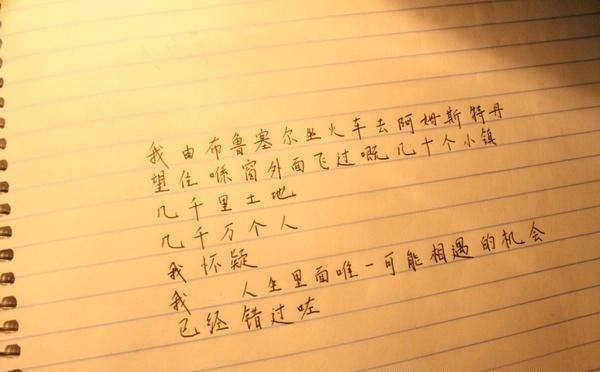 我由布鲁塞尔坐火车去阿姆斯特丹
望住喺窗外面飞过嘅几十个小镇
几千里土地
几千万个人
我怀疑
我 人生里面唯一可能相遇的机会
已经错过咗